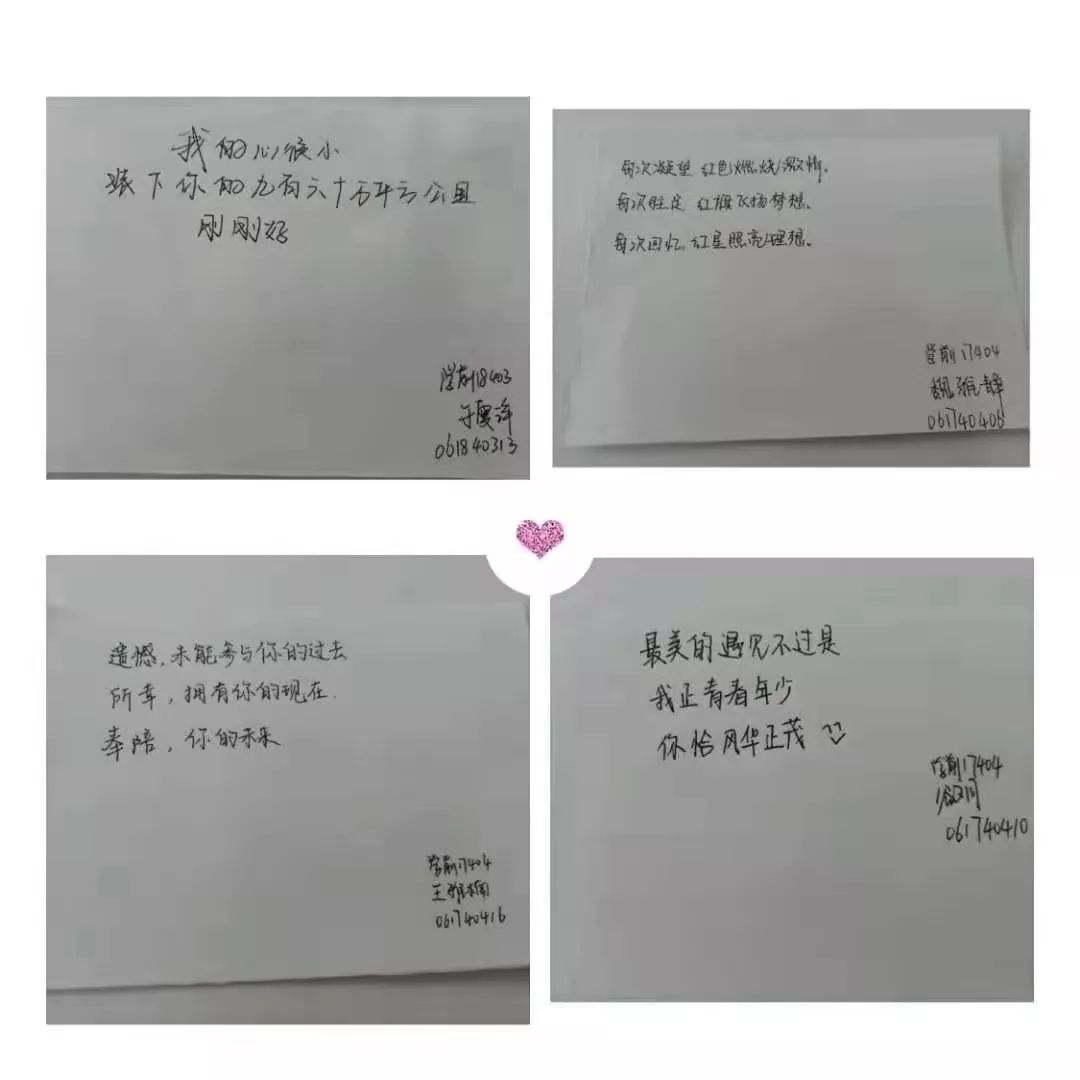 我的心很小
装下你的九百六十万平方公里
刚刚好
学前18403
061840313
每次凝望,红色燃烧激情。
每次驻足,红旗飞扬梦想。
每次回忆,红星照亮理想。
学前17404
魏雅静
061740406
遗憾,未能参与你的过去
所幸,拥有你的现在.
奉陪,你的未来
学前17404
王雅楠
061740416
最美的遇见不过是
我正青春年少
你恰风华正茂
学前17404
061740410